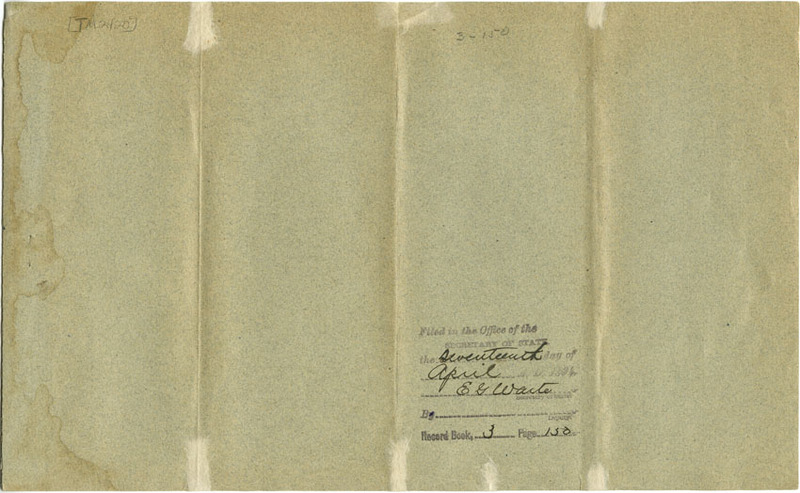 3-150
Filed in the Office of the
SECRETARY OF STATE
the Seventeenth day of
April A. D.
E G Waite
Secretary of State
By
Deputy
Record Book, 3 Page 150